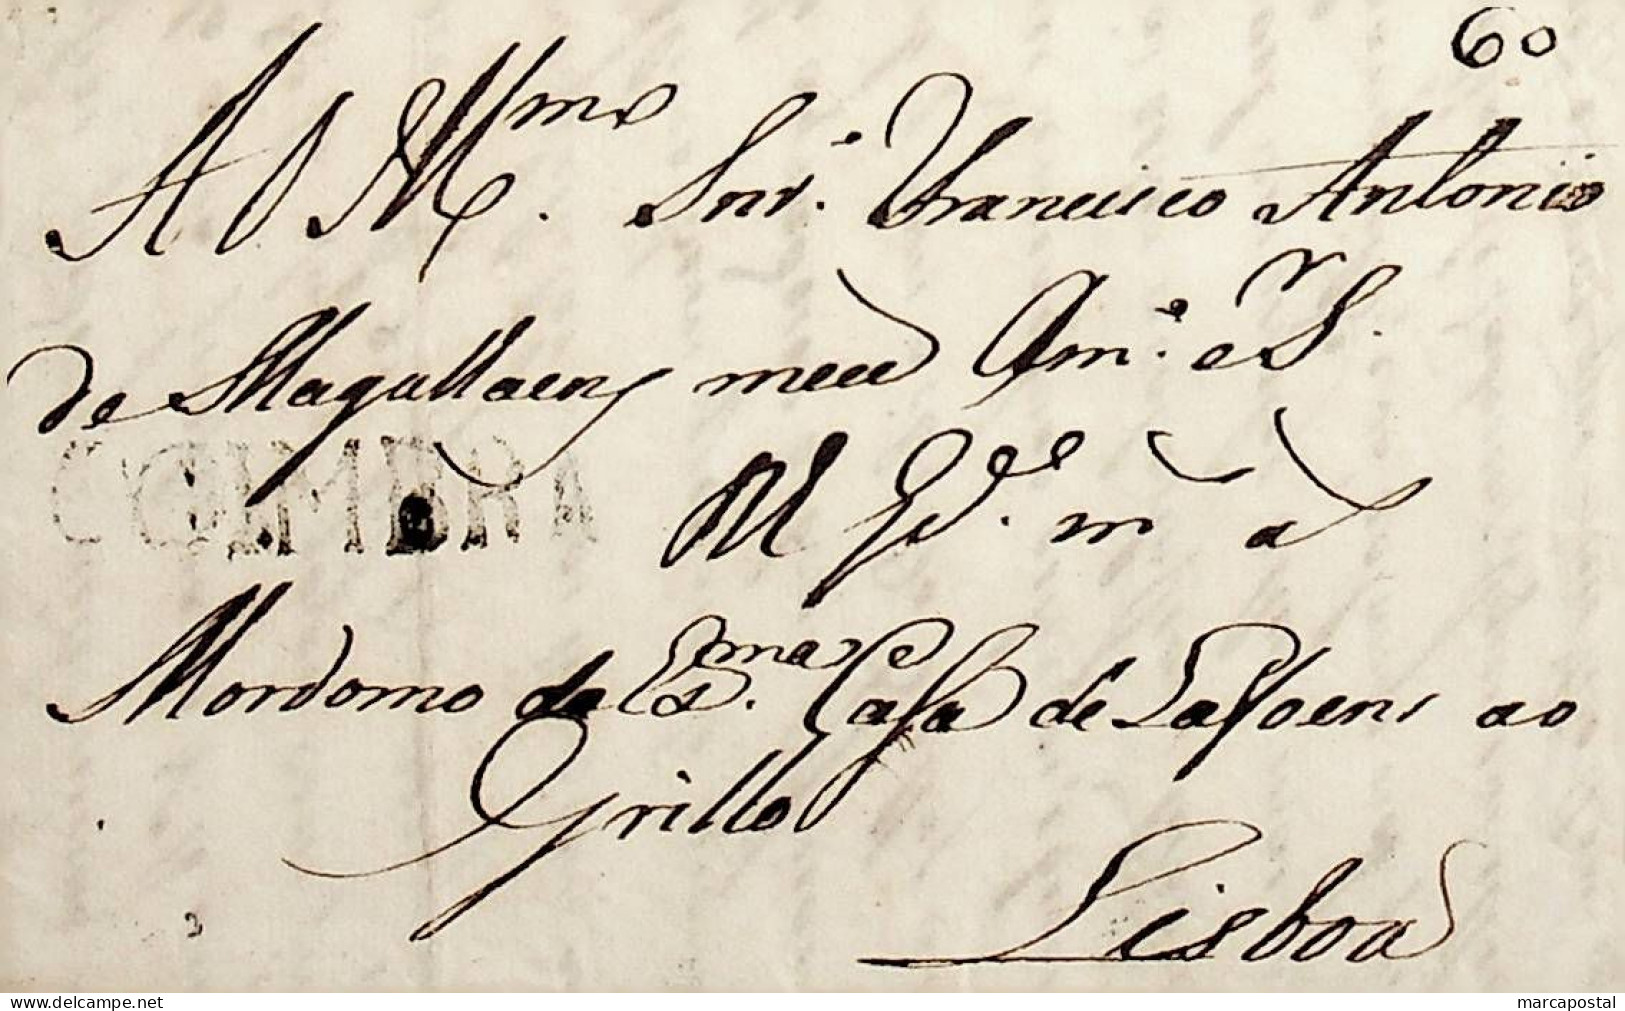 60
A O Illmo. Snr. Francisco Antonio
de Magalhaens meu Amo. e Sr.
COIMBRA
Gde. m a
Mordomo da Exma. Casa de Lafoens ao
Grillo
Lisboa
delcampe.net
marcapostal